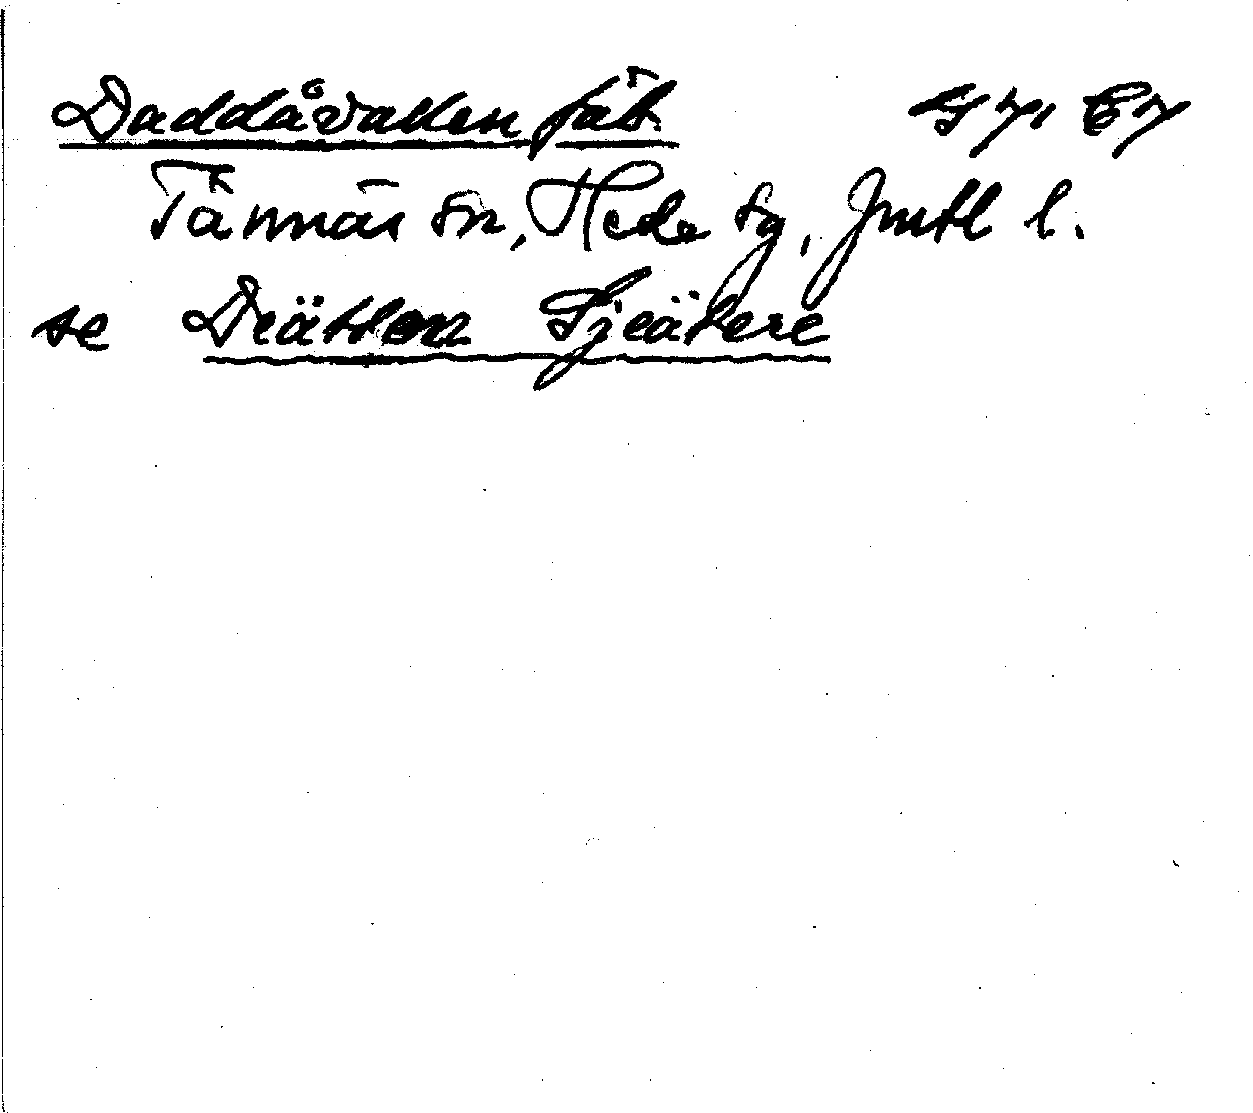 Daddåvallen fäb.
Tännäs sn, Hede tg, Jmtl l.
se Deätten Sjeätere